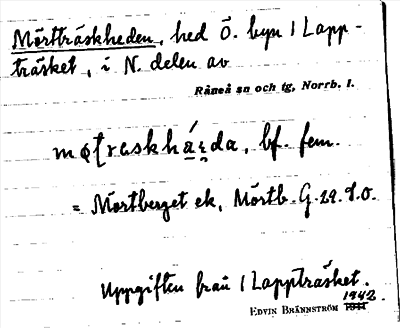 Mörtträskheden, hed Ö. byn i Lapp-
träsket, i N. delen av
Råneå sn och tg, Norrb. l.
bf. fem.
= Mörtberget ek, Mörtb. G.29.S.O.
Uppgiften från i Lappträsket.
1942.
EDVIN BRÄNNSTRÖM 1941